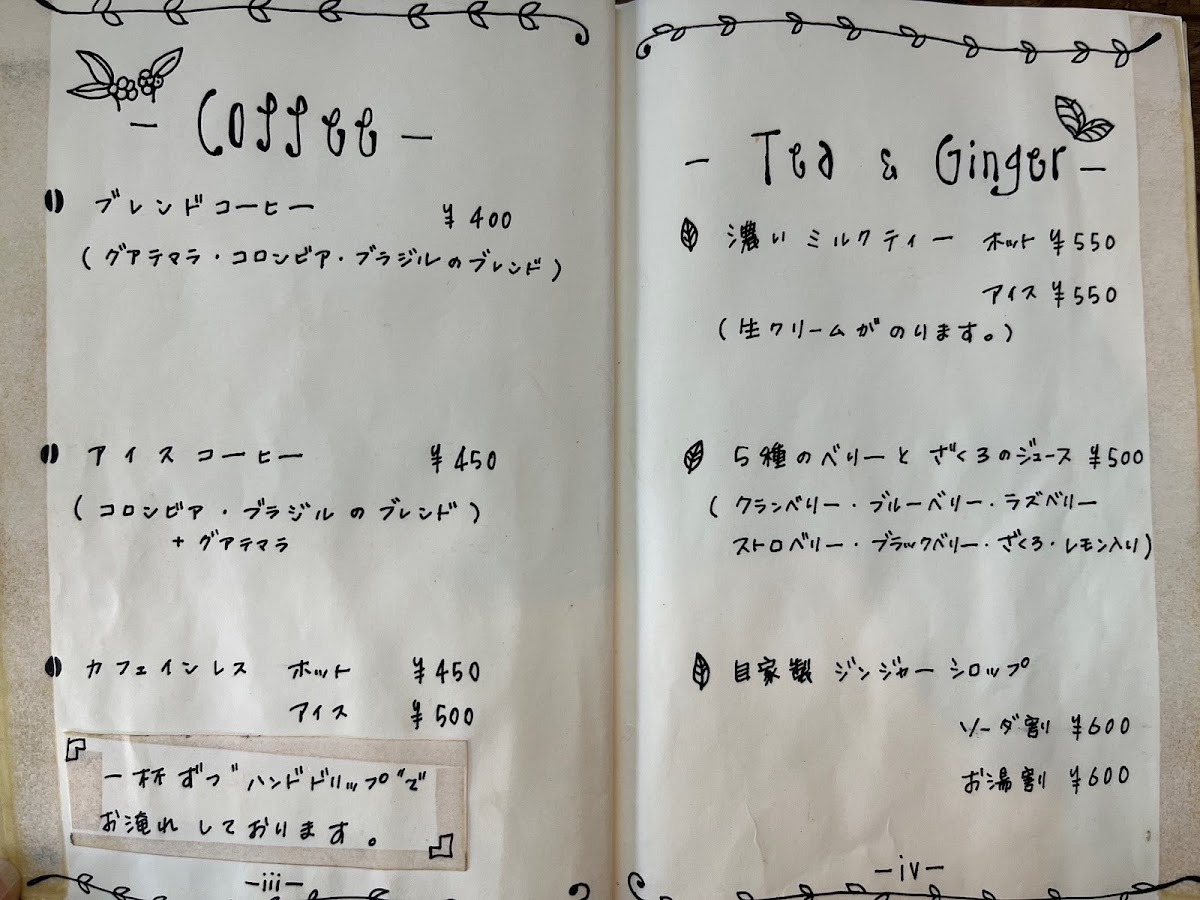 - Coffee -
ブレンドコーヒー ¥400
(グアテマラ・コロンビア・ブラジルのブレンド)
アイスコーヒー ¥450
(コロンビア・ブラジルのブレンド)
+グアテマラ
カフェインレス ホット ¥450
アイス ¥500
一杯ずつ"ハンドドリップ"で
お淹れしております。
-iii-
- Tea & Ginger -
濃いミルクティー ホット ¥550
アイス ¥550
(生クリームがのります。)
5種のベリーとざくろのジュース ¥500
(クランベリー・ブルーベリー・ラズベリー
ストロベリー・ブラックベリー・ざくろ・レモン入り)
自家製 ジンジャーシロップ
ソーダ割 ¥600
お湯割 ¥600
-iv-